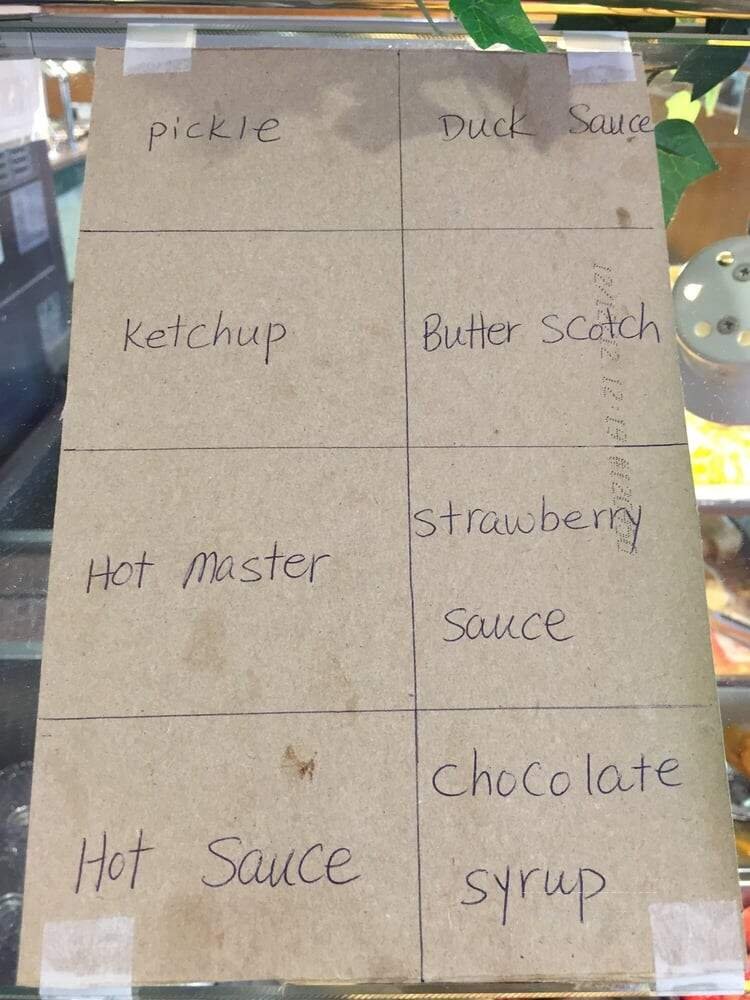 pickle
Duck Sauce
Ketchup
Butter Scotch
Hot master
strawberry
sauce
Hot Sauce
chocolate
syrup